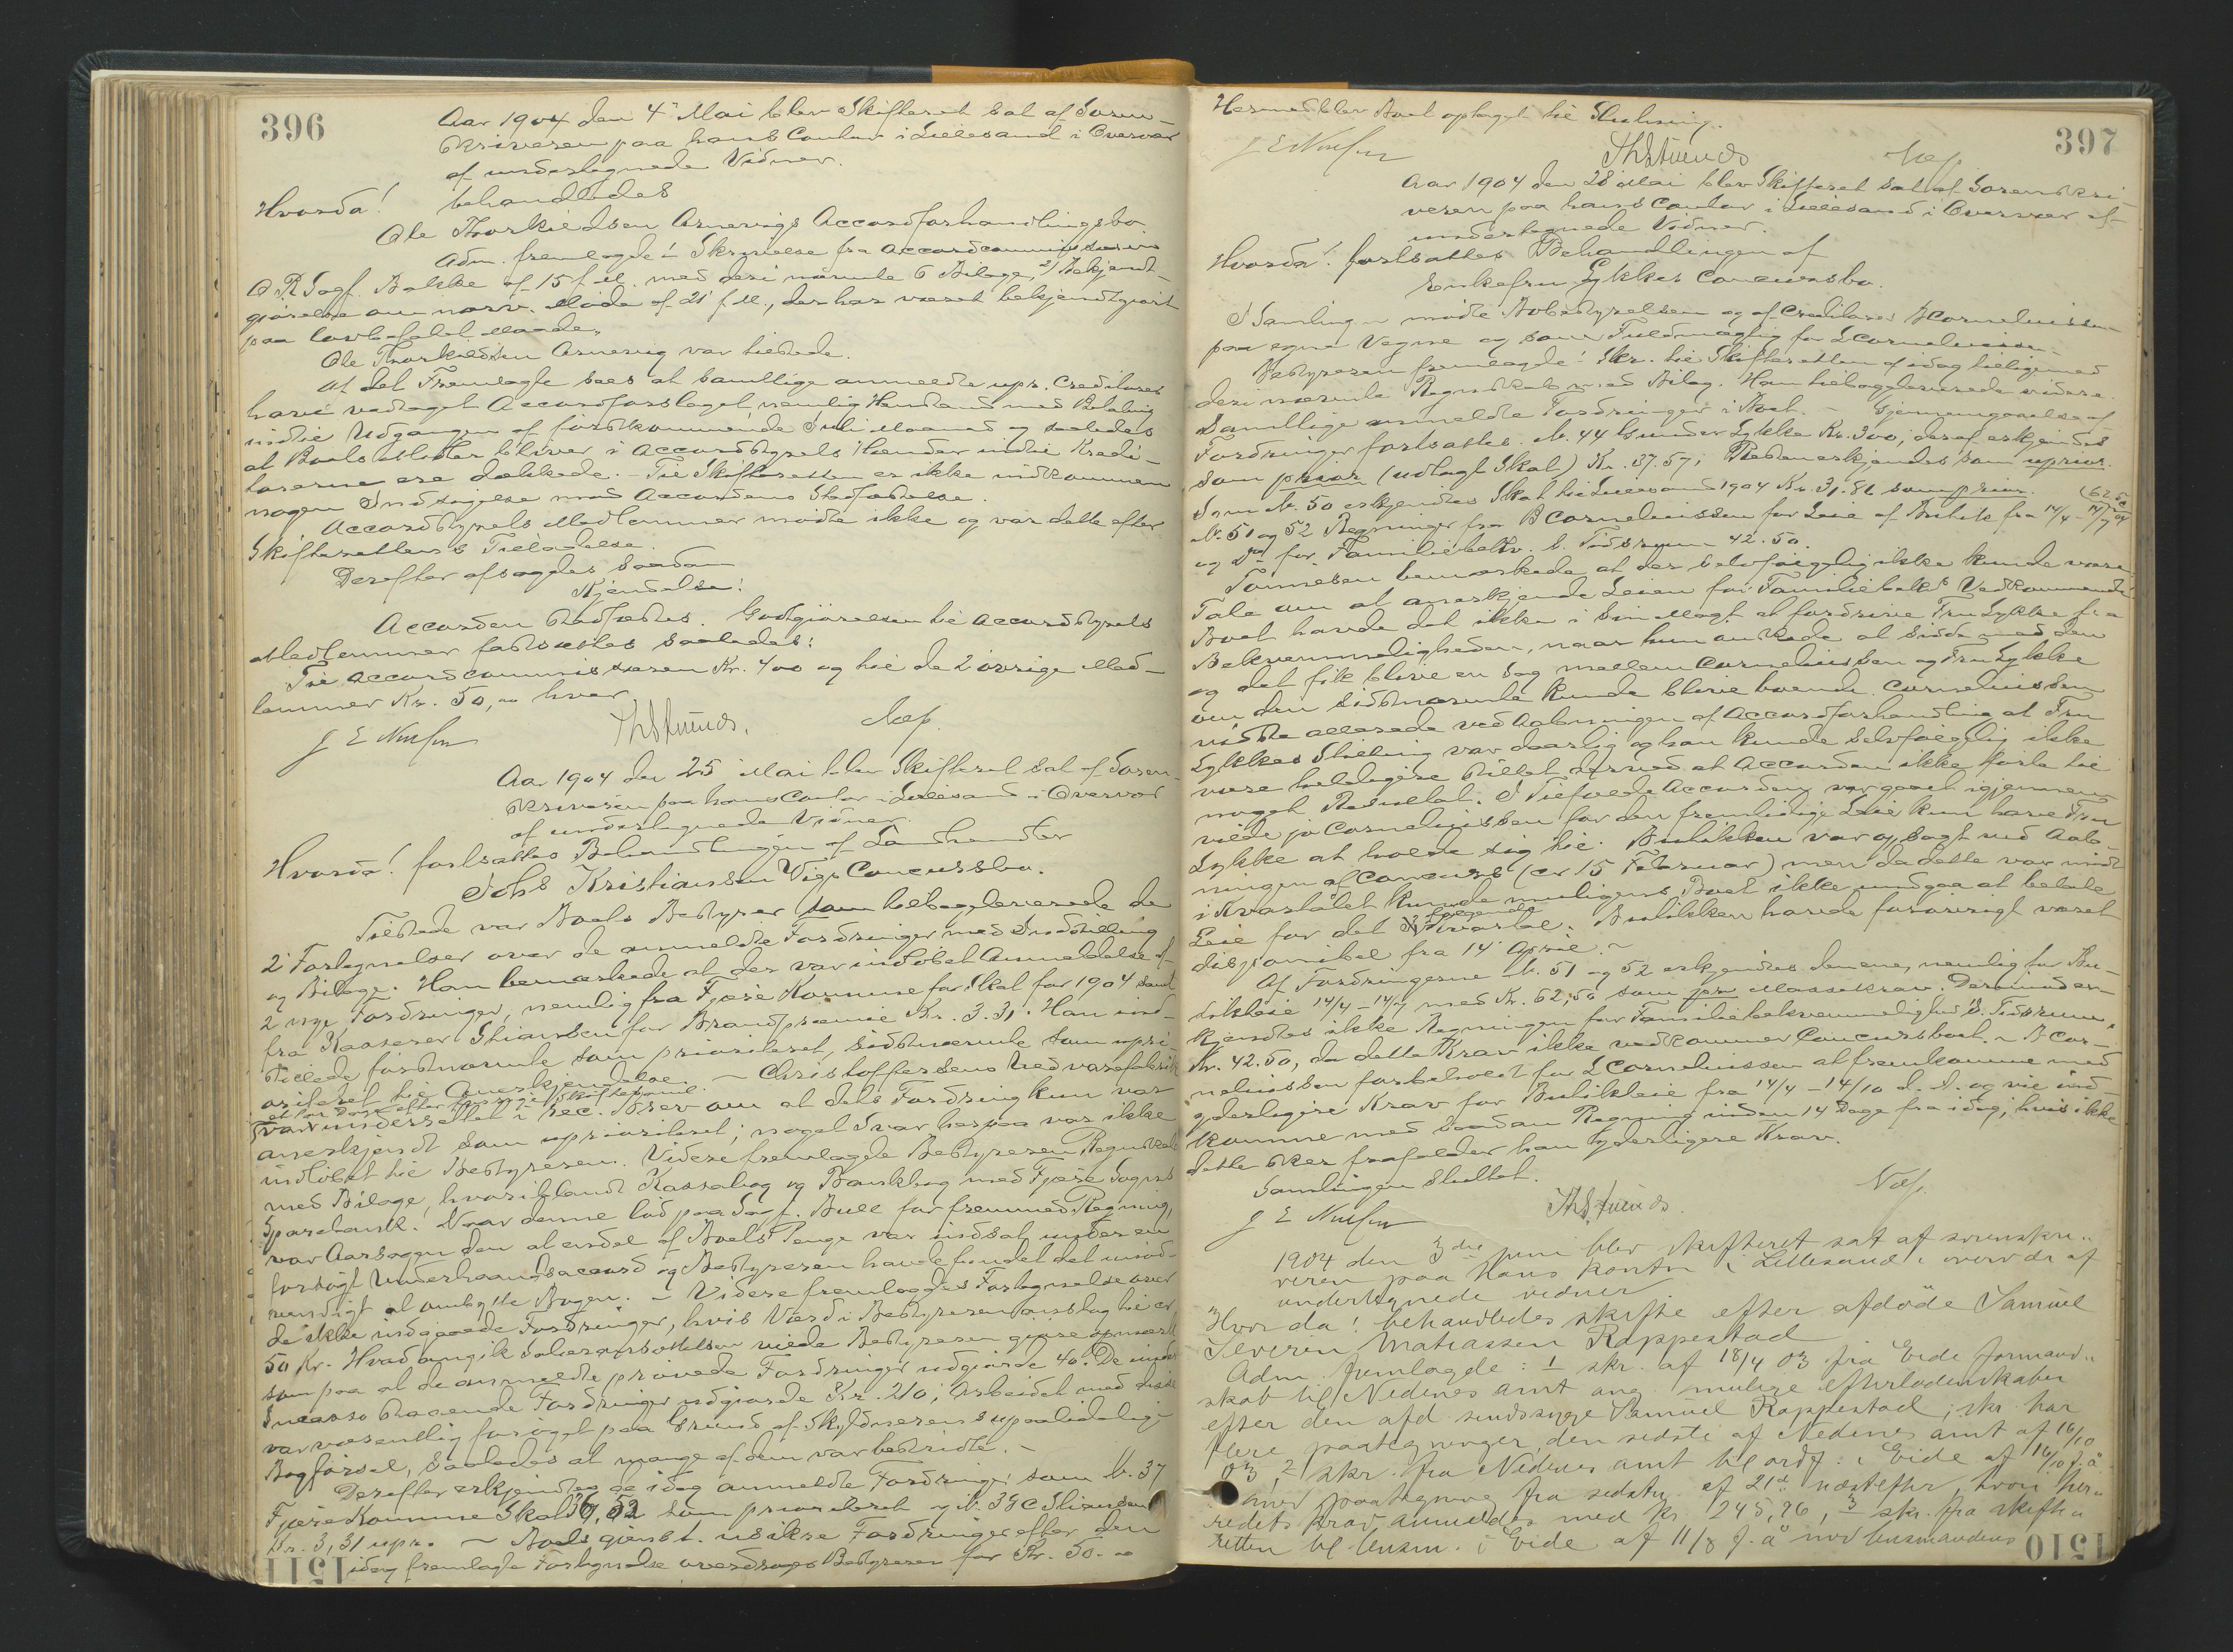 396
Aar 1904 den 4de Mai blev Skifteret sat af Soren-
skriveren paa hans Contor i Lillesand i Overvær
af undertegnede Vidner.
Hvorda! behandledes
Ole Thorkildsen Arnevigs Accordforhandlingsbo.
Adm. fremlagde 1 Skrivelse fra Accordcommissæren
O.R.Sagf. Bakke af 15 f. M. med deri nævnte 6 Bilage, 2) Bekjendt-
gjørelse om nærv. Møde af 21 f. M., der har været bekjendtgjort
paa lovbefalet Maade.
Ole Thorkildsen Arnevig var tilstede.
Af det Fremlagte saaes at samtlige anmeldte upr. Creditorer
have vedtaget Accordforslaget, nemlig Henstand med Betaling
indtil Udgangen af førstkommende Juli Maaned og saaledes
at Boets Midler bliver i Accordstyrets Hænder indtil Kredi-
torerne ere dækkede. - Til Skifteretten er ikke indkommen
nogen Indsigelse mod Accordens Stadfæstelse.
Accordstyrets Medlemmer mødte ikke og var dette efter
Skifterettens Tilladelse.
Derefter afsagdes saadan
Kjendelse:
Accorden stadfæstes. Godtgjørelsen til Accordstyrets
Medlemmer fastsættes saaledes:
Til Accordcommissæren Kr. 400 og til de 2 øvrige Med-
lemmer Kr. 50,00 hver.
J E Th Næs
Aar 1904 den 25 Mai blev Skifteret sat af Soren-
skriveren paa hans Contor i Lillesand i Overvær
af undertegnede Vidner.
Hvorda! fortsattes Behandlingen af Landhandler
Johs Kristiansen Vigs Concursbo.
Tilstede var Boets Bestyrer som tilbageleverede de
2 Fortegnelser over de anmeldte Fordringer med Indstilling
og Bilage. Han bemærkede at der var indløbet Anmeldelse af
2 nye Fordringer, nemlig fra Fjære Kommune for Skat for 1904 samt
fra Kasserer Stiansen for Brandpræmie Kr. 3.31. Han ind-
stillede førstnævnte som prioriteret, sidstnævnte som upri-
oriteret til Anerkjendelse. - Christoffersens Uldvarefabrik
et Par Dage efter forrige Skiftesamling
var underrettet i rec. Brev om at dets Fordring kun var
anerkjendt som uprioriteret; noget Svar herpaa var ikke
indløbet til Bestyreren. Videre fremlagde Bestyreren Regnskab
med Bilage, hvoriblandt Kassabog og Bankbog med Fjære Sogns
Sparebank. Naar denne lød paa Sagf. Bull for fremmed Regning,
var Aarsagen den at endel af Boets Penge var indsat under en
forsøgt Underhaandsaccord og Bestyreren havde fundet det unød-
vendigt at ombytte Bogen. - Videre fremlagdes Fortegnelse over
de ikke indgaaede Fordringer, hvis Værdi Bestyreren anslog til ca
50 Kr. Hvad angik Salærfastsættelsen vilde Bestyreren gjøre opmærk-
som paa at de anmeldte prøvede Fordringer udgjorde 40. De under
Incasso staaende Fordringer udgjorde Kr. 210; Arbeidet med disse
var væsentlig forøget paa Grund af Skyldnerens upaalidelige
Bogførsel, saaledes at mange af dem var bestridte. -
Derefter erkjendtes de idag anmeldte Fordringer som N. 37
Fjære Kommune Skat 39,52 som prioriteret og N. 38 C Stiansen
Kr. 3,31 upr. - Boets gjenst. usikre Fordringer efter den
idag fremlagte Fortegnelse overdroges Bestyreren for Kr. 50.00
1511
397
Hermed blev Boet optaget til Slutning.
J E Th Næs
Aar 1904 den 28 Mai blev Skifteret sat af Sorenskri-
veren paa hans Contor i Lillesand i Overvær af
undertegnede Vidner.
Hvorda! fortsattes Behandlingen af
Enkefru Lykkes Concursbo.
I Samlingen mødte Bobestyrelsen og af Creditorer B Corneliussen
paa egne Vegne og som Fuldmægtig for L Corneliussen.
Bestyreren fremlagde 1 Skr. til Skifteretten af idag tilligemed
deri nævnte Regnskab med Bilag. Han tilbageleverede videre
samtlige anmeldte Fordringer i Boet. - Gjennemgaaelse af
Fordringer fortsattes. N. 44 Gunder Lykke Kr. 300; deraf erkjendtes
som prior (udlagt Skat) Kr. 37.57; Resten erkjendes som uprior.
Som N. 50 erkjendtes Skat til Lillesand 1904 Kr. 31.86 som prior.
N. 51 og 52 Regninger fra B Corneliussen for Leie af Butik fra 14/4 - 14/7 04 (62.50
og do for Familiebekv. s. Tidsrum 42.50.
Tønnesen bemærkede at der selvfølgelig ikke kunde være
Tale om at anerkjende Leien for Familiebekvs Vedkommende
Boet havde det ikke i sin Magt at fordrive Fru Lykke fra
Bekvemmeligheden, naar hun ønskede at sidde med den
og det fik blive en Sag mellem Corneliussen og Fru Lykke
om den sidstnævnte kunde blive boende. Corneliussen
vidste allerede ved Aabningen af Accordforhandling at Fru
Lykkes Stilling var daarlig og han kunde selvfølgelig ikke
være heldigere stillet derved at Accorden ikke førte til
noget Resultat. I Tilfælde Accorden var gaaet igjennem
vilde jo Corneliussen for den fremtidige Leie kun have Fru
Lykke at holde sig til. Butikken var opsagt ved Aab-
ningen af Concurs (ca 15 Februar) men da dette var midt
i Kvartalet kunde muligens Boet ikke undgaa at betale
Leie for det følgende Kvartal. Butikken havde forøvrigt været
disponibel fra 14 April. -
Af Fordringerne N. 51 og 52 erkjendtes den ene, nemlig for Bu-
tikleie 14/4 - 14/7 med Kr. 62,50 som Massekrav. Derimod er-
kjendtes ikke Regningen for Familiebekvemmelighed s. Tidsrum,
Kr. 42.50, da dette Krav ikke vedkommer Concursboet. - B Cor-
neliussen forbeholdt for L Corneliussen at fremkomme med
yderligere Krav for Butikleie fra 14/7 - 14/10 d. A. og vil ind-
komme med saadan Regning inden 14 Dage fra idag; hvis ikke
dette sker frafalder han yderligere Krav.
Samlingen sluttet.
J E Th Næs
1904 den 3die juni blev skifteret sat af sorenskri-
veren paa hans kontor i Lillesand i overvær af
undertegnede vidner
Hvorda! behandledes skifte efter afdøde Samuel
Severin Mathiassen Rappestad
Adm. fremlagde: 1 skr. af 18/4 03 fra Eide formand-
skab til Nedenes amt ang. mulige efterladenskaber
efter den afd. sindssyge Samuel Rappestad; skr. har
flere paategninger, den sidste af Nedenes amt af 16/10
03, 2 skr. fra Nedenes amt til ordf. i Eide af 16/10 f. å
med paategning fra sidste af 21de næstefter, hvori her-
redets krav anmeldes med kr. 245,96, 3 skr. fra skifte-
retten til lensm. i Eide af 11/8 f. å med lensmandens
1510